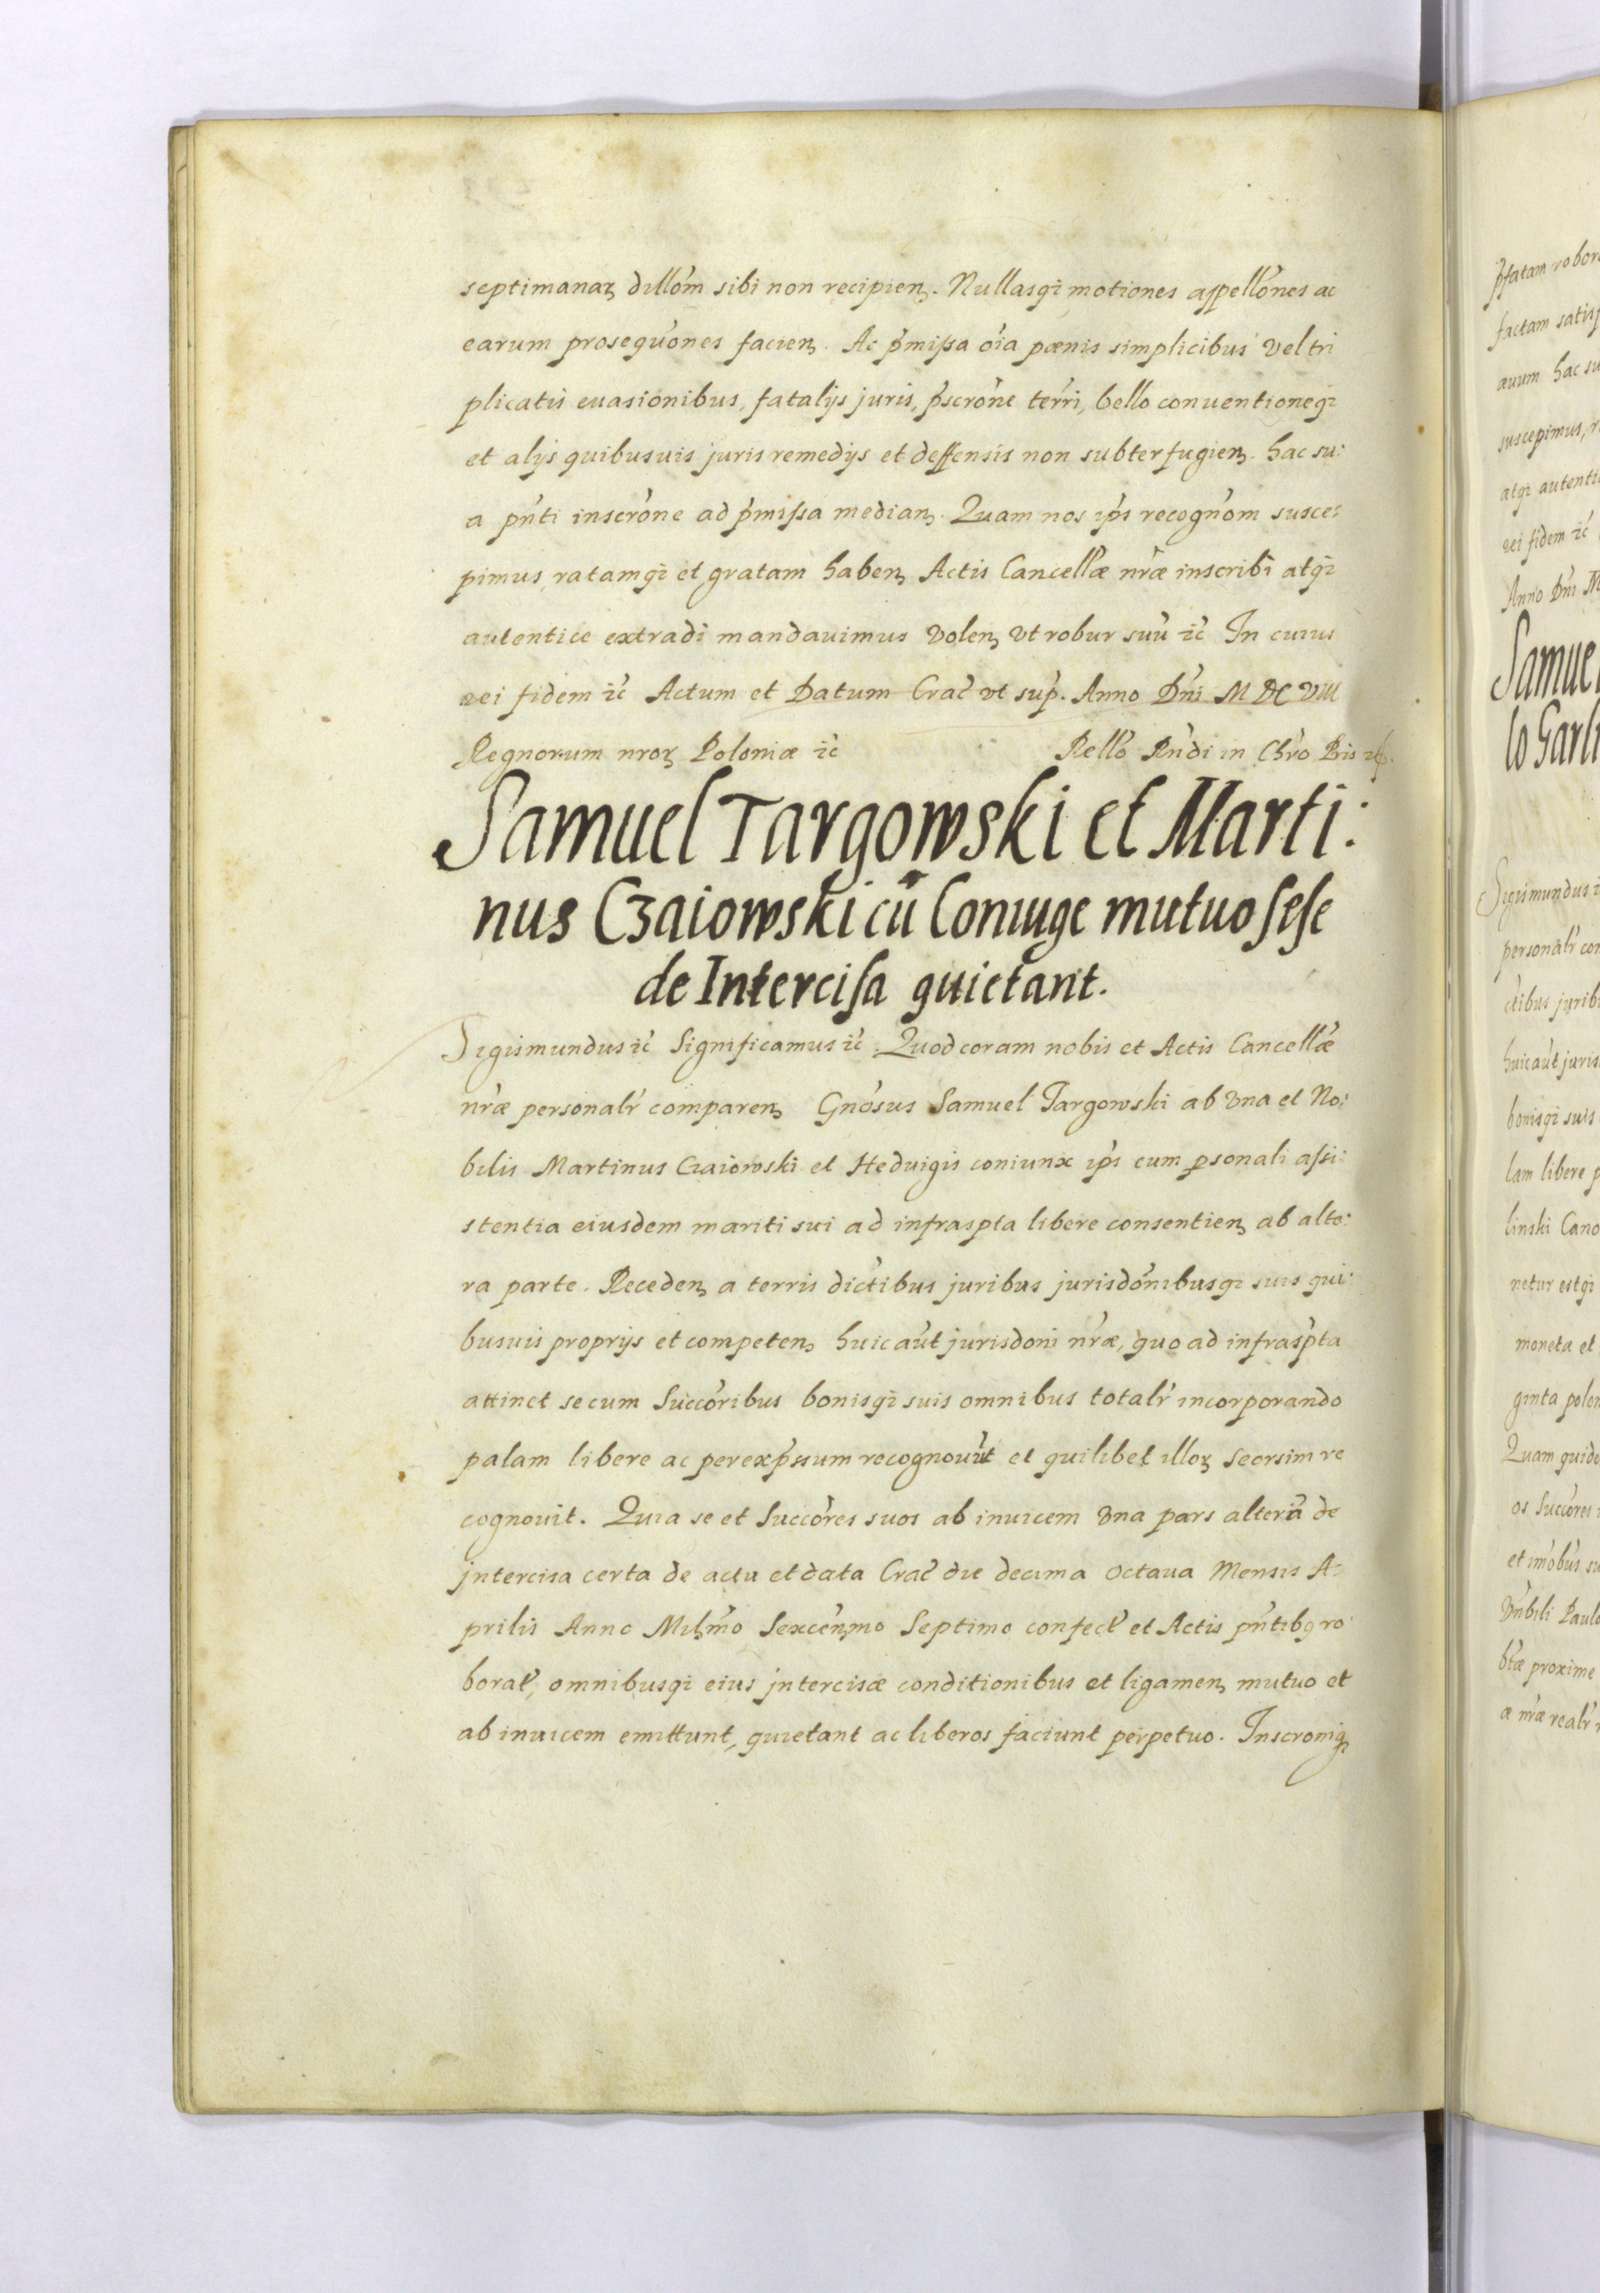 septimanaꝝ dillo͠m sibi non recipien̄. Nullasqꝫ motiones appello͠nes ac
earum prosequo͠nes facien̄. Ac p͠missa o͠ia pœnis simplicibus vel tri
plicatis euasionibus, fatalijs juris, p͠scro͠ne ter͠ri, bello conuentioneqꝫ
et alijs quibusuis juris remedijs et deffensis non subterfugien̄. hac su:
a pn͠ti inscro͠ne ad p͠missa median̄. Quam nos ip͠s recogno͠m susce:
pimus, ratamqꝫ et gratam haben̄ Actis Cancell͠æ nr͠æ inscribi atqꝫ
autentice extradi mandauimus volen̄ vt robur suū ꝛc͠ In cuius
rei fidem ꝛc͠ Actum et Datum Crac͠ vt sup͠. Anno Dn͠i M DC VIII
Regnorum nroꝝ Poloniæ ꝛc͠ Rello͠ Rn͠di in Chr͠o Pris
Samuel Targowski et Marti:
nus Czaiowski cū Coniuge mutuo sese
de Intercisa quietant.
Sigismundus ꝛc͠ Significamus ꝛc͠. Quod coram nobis et Actis Cancell͠æ
nr͠æ personalr͠ comparen̄ Gno͠sus Samuel Targowski ab vna et No:
bilis Martinus Czaiowski et Heduigis coniunx ip͠s cum ꝑsonali assi:
stentia eiusdem mariti sui ad infraspta libere consentien̄ ab alte:
ra parte. Receden̄ a terris dic͠tibus juribus jurisdo͠nibusqꝫ suis qui:
busuis proprijs et competen̄ huic au͠t jurisdoni nr͠æ, quo ad infrasp͠ta
attinet se cum Succo͠ribus bonisqꝫ suis omnibus totalr͠ incorporando
palam libere ac perexp͠ssum recognouūt et quilibet illoꝝ seorsim re
cognouit. Quia se et Succo͠res suos ab inuicem vna pars alterā de
jntercisa certa de actu et data Crac͠ die decima octaua Mensis A:
prilis Anno Mill͠mo Sexcen͠mo Septimo confect͠ et Actis pn͠tibꝫ ro
borat͠, omnibusqꝫ eius jntercisæ conditionibus et ligamen̄ mutuo et
ab inuicem emittunt, quietant ac liberos faciunt perpetuo. Inscroniqꝫ